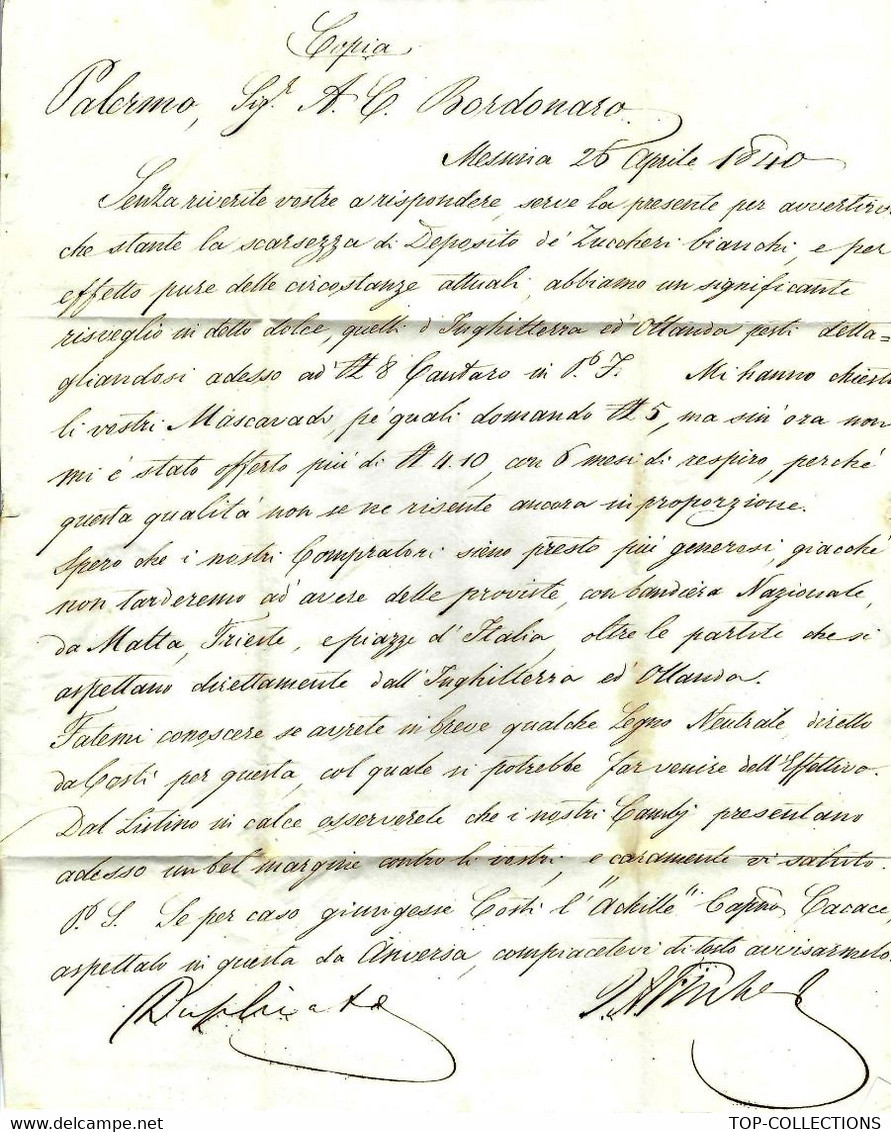 Copia
Palermo, Sigr. A. C. Bordonaro
Messina 26 Aprile 1840
Senza riverite vostre a rispondere, serve la presente per avvertirvi
che stante la scarsezza di Deposito de' Zuccheri bianchi, e per
effetto pure delle circostanze attuali, abbiamo un significante
risveglio in detto dolce, quelli d'Inghilterra ed' Ollanda pesti detta=
gliandosi adesso ad' 8 Cantaro in P.o F. Mi hanno chiesti
li vostri Mascavadi, pe' quali domando 5, ma sin' ora non
mi é stato offerto piú di 4.10, con 6 mesi di respiro, perché
questa qualitá non se ne risente ancora in proporzione.
Spero che i nostri Compratori sieno presto piú generosi, giacché
non tarderemo ad' avere delle proviste, con bandiera Nazionale,
da Malta, Trieste, e piazze d' Italia, oltre le partite che si
aspettano direttamente dall'Inghilterra ed' Ollanda.
Fatemi conoscere se avrete in breve qualche Legno Neutrale, diretto
da Costí per questa, col quale si potrebbe far venire dell'Effettivo.
Dal Listino in calce osserverete che i nostri Cambj presentano
adesso un bel' margine contro li vostri, e caramente vi saluto.
P. S. Se per caso giungesse Costí l' "Achille" Capno. Cacace,
aspettato in questa da Anversa, compiacetevi di tosto avvisarmelo.
Duplicata
TOP-COLLECTIONS